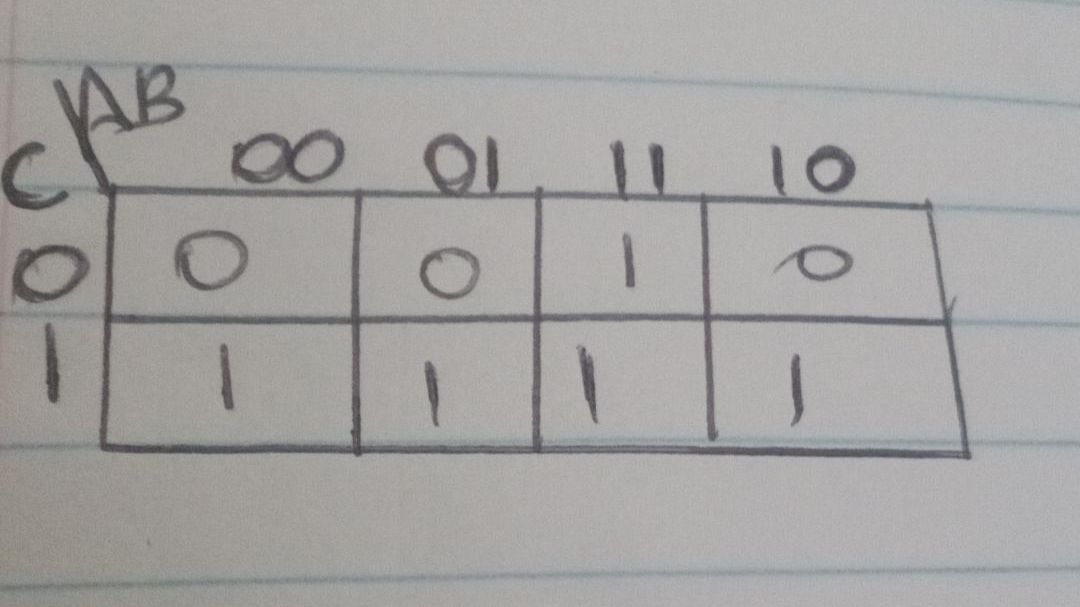 AB
C 00 01 11 10
0 0 0 1 0
1 1 1 1 1